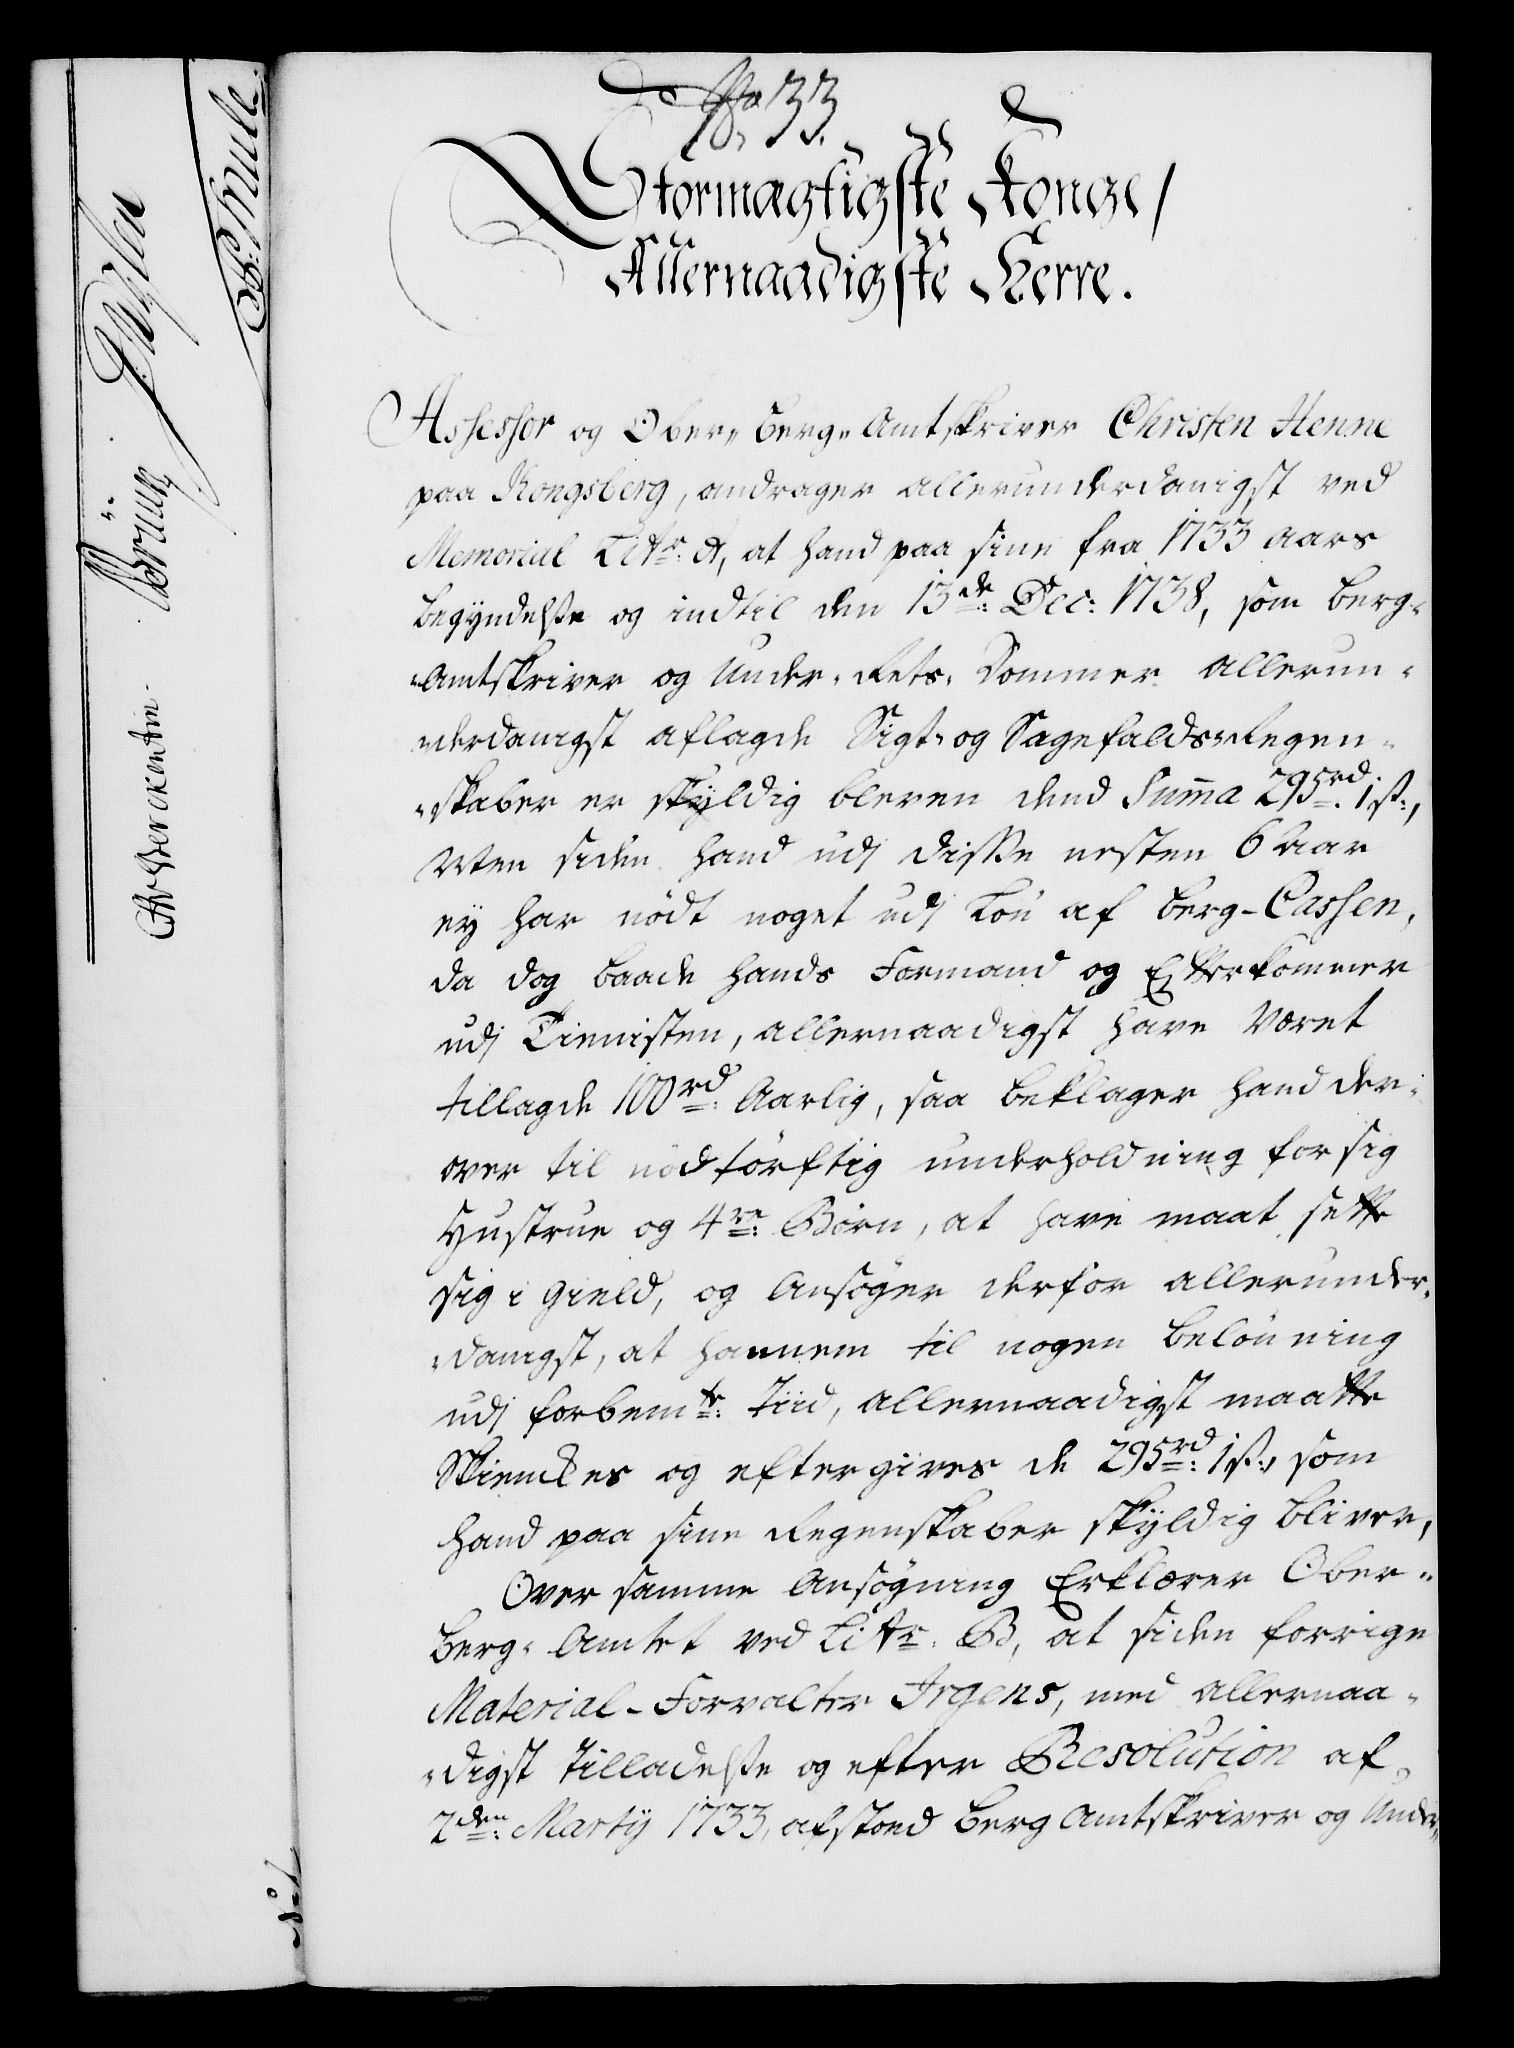 No 33.
Stormægtigste Konge/
Allernaadigste Herre.
Assessor og Ober„ Berg„ Amtskriver Christen Henne
paa Kongsberg, andrager allerunderdanigst ved
Memorial Litr: A, at hand paa sine fra 1733 aars
begyndelsse og indtil den 13de: Dec: 1738, som Berg„
„Amtskriver og Under„ Rets„ Dommer allerun„
„derdanigst aflagde Sigt„ og Sagefalds„ Regen„
„skaber er skyldig bleven dend Suma 295rd. 1 ß:,
Men siden hand udj disse nesten 6 Aar
ej har nödt noget udj Lön af Berg-Cassen,
da dog baade hands Formand og Efterkommer
udj Tienisten, allernaadigst have været
tillagde 100rd: Aarlig, saa beklager hand der„
over til nödtörftig underholdning for sig
Hustrue og 4re: Börn, at have maat sette
sig i Gield, og Ansöger derfor allerunder„
„danigst, at hannem til nogen belönning
udj forbemte: Tiid, allernaadigst maatte
Skienckes og eftergives de 295rd: 1 ß:, som
hand paa sine Regenskaber skyldig bliver,
Over samme Ansögning Erklærer Ober„
Berg„ Amtet ved Litr: B, at siden forrige
Material-Forvalter Irgens, med allernaa„
„digst Tilladelsse og efter Resolution af
2den: Martij 1733, afstoed Berg Amtskriver og Under„